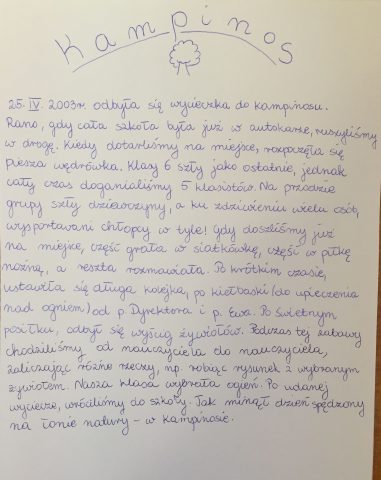 Kampinos
25. IV. 2003r. odbyła się wycieczka do Kampinosu.
Rano, gdy cała szkoła była już w autokarze, ruszyliśmy
w drogę. Kiedy dotarliśmy na miejsce, rozpoczęła się
piesza wędrówka. Klasy 6 szły jako ostatnie, jednak
cały czas doganialiśmy 5 klasistów. Na przodzie
grupy szły dziewczyny, a ku zdziwieniu wielu osób,
wysportowani chłopcy w tyle! Gdy doszliśmy już
na miejsce, część grała w siatkówkę, część w piłkę
nożną, a reszta rozmawiała. Po krótkim czasie,
ustawiła się długa kolejka, po kiełbaski (do upieczenia
nad ogniem) od p. Dyrektora i p. Ewa. Po świetnym
posiłku, odbył się wyścig żywiołów. Podczas tej zabawy
chodziliśmy od nauczyciela do nauczyciela,
zaliczając różne rzeczy, np. robiąc rysunek z wybranym
żywiołem. Nasza klasa wybrała ogień. Po udanej
wycieczce, wróciliśmy do szkoły. Tak minął dzień spędzony
na łonie natury - w Kampinosie.